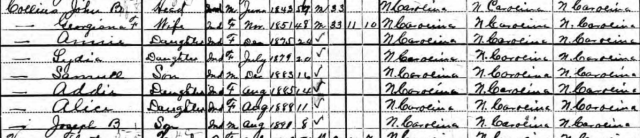 Collins John B Head M June 1843 57 M 33 N Carolina N Carolina N Carolina
— Georgiana F Wife F Nov 1851 48 M 33 11 10 N Carolina N. Carolina N. Carolina
— Annie Daughter F Dec 1875 20 N Carolina N. Carolina N. Carolina
— Lydia Daughter F July 1879 20 N Carolina N. Carolina N. Carolina
— Samuel Son M Dec 1883 16 N. Carolina N. Carolina N. Carolina
— Addie Daughter F Aug 1885 14 N Carolina N. Carolina N. Carolina
— Alice Daughter F Aug 1888 11 N Carolina N. Carolina N. Carolina
— Joseph B Son M Aug 1891 8 N Carolina N. Carolina N. Carolina